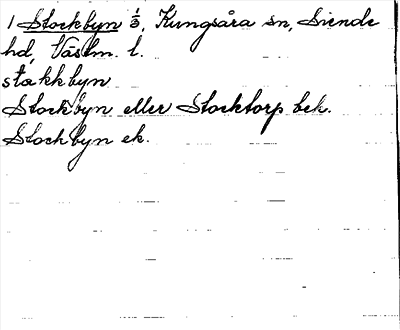 1 Stockbyn 1/3, Kungsåra sn, Siende
hd, Västm. l.
ståkkbyn
Stockbyn eller Stocktorp bek.
Stockbyn ek.